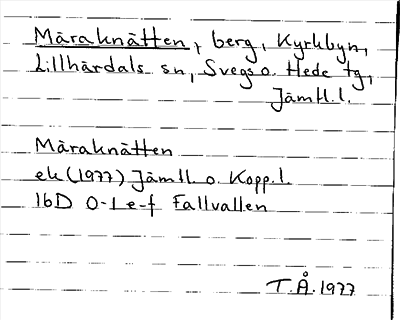 Märaknätten, berg, Kyrkbyn,
Lillhärdals sn, Svegs o. Hede tg,
Jämtl.l.
Märaknätten
ek (1977) Jämtl. o. Kopp.l.
16D 0-1 e-f Fallvallen
T.Å. 1977